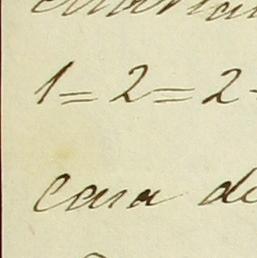 1=2=2-
casa de